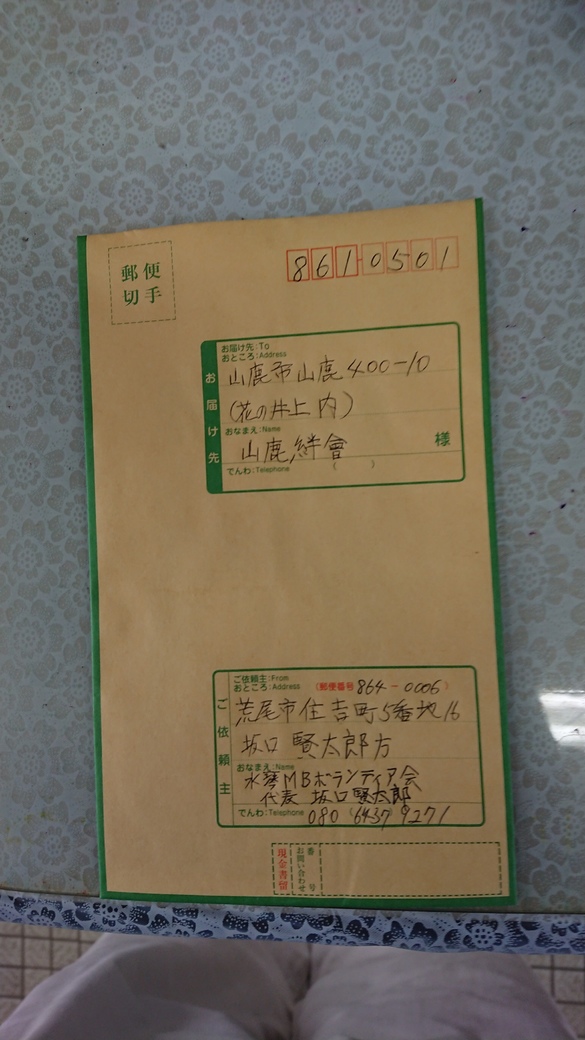 郵便
切手
8610501
お届け先
お届け先:To
おところ:Address
山鹿市山鹿400-10
(花の井上内)
おなまえ:Name
山鹿絆會
様
でんわ:Telephone ( )
ご依頼主
ご依頼主:From
おところ:Address (郵便番号 864-0006)
荒尾市住吉町5番地16
坂口 賢太郎方
おなまえ:Name
水琴MBボランティア会
代表 坂口賢太郎
でんわ:Telephone 080 6437 9271
現金書留
お問い合わせ
番号